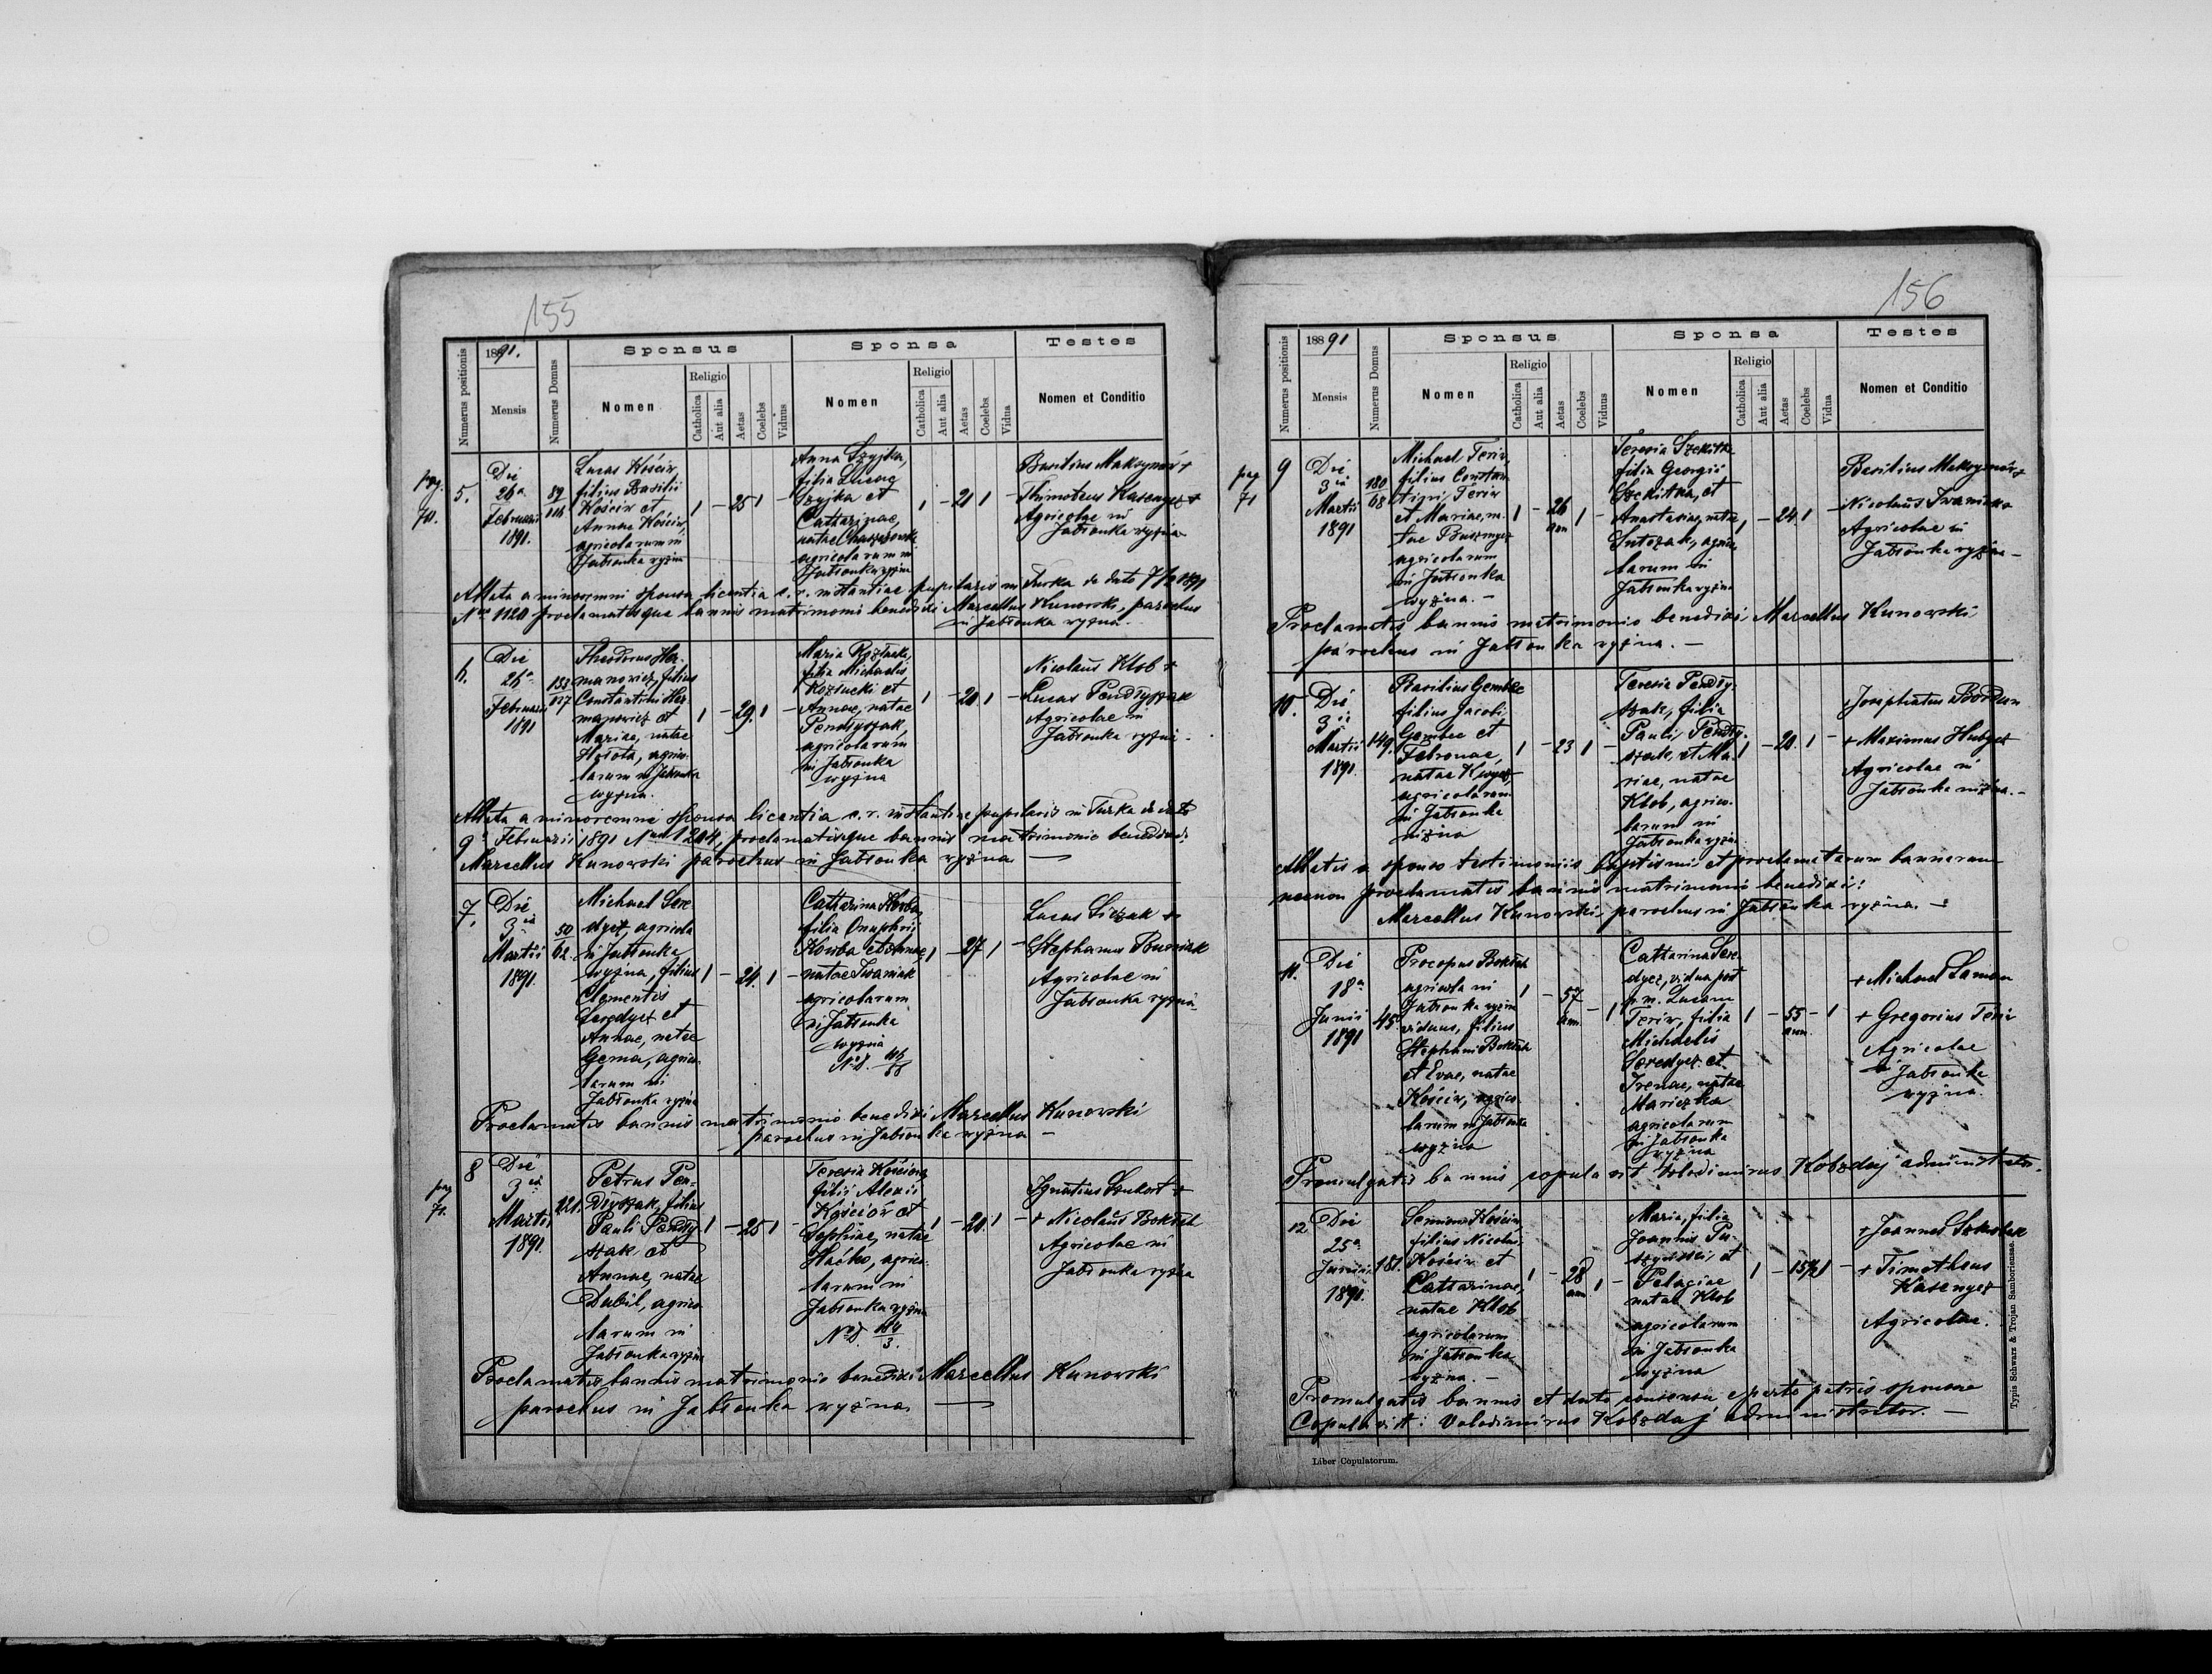 155
Numerus positionis
1891.
Mensis
Numerus Domus
Sponsus
Nomen
Religio
Catholica
Aut alia
Aetas
Coelebs
Viduus
Sponsa
Nomen
Religio
Catholica
Aut alia
Aetas
Coelebs
Vidua
Testes
Nomen et Conditio
pag.
5.
Die
26a
Februarii
1891.
89
Lucas Kościw,
filius Basilii
Kościw et
Annae Kościw,
agricolarum in
Jabłonka wyżna
1 – 25 1 –
Anna Szyjka,
filia Lucae
Szyjka et
Catharinae,
natae
agricolarum in
Jabłonka wyżna
1 – 21 1 –
Basilius Maksymów +
Thimoteus Kasenycz +
Agricolae in
Jabłonka wyżna
Allata a minorenni sponsa licentia c. r. instantiae pupilaris in Turka de dato 7/2 1891
Nro 1120 proclamatisque bannis matrimonio benedixi Marcellus Kunowski, parochus
in Jabłonka wyżna.
6.
Die
26a
Februarii
1891
133
117
Theodorus Her-
manowicz, filius
Constantini Her-
manowicz et
Mariae, natae
agrico-
larum in Jabłonka
wyżna.
1 – 29. 1 –
Maria
filia Michaelis
Kozłucki et
Annae, natae
Pendyszak,
agricolarum
in Jabłonka
wyżna
1 – 20. 1 –
Nicolaus Kłob +
Lucas Pendyszak
Agricolae in
Jabłonka wyżna.
Allata a minorenni sponsa licentia c. r. instantiae pupilaris in Turka de dato
9a Februarii 1891 Nro 1204, proclamatisque bannis matrimonio benedixi:
Marcellus Kunowski parochus in Jabłonka wyżna —
7.
Die
3ia
Martii
1891.
50
62.
Michael Sere-
dycz, agricola
in Jabłonka
wyżna, filius
Clementis
Seredycz et
Annae, natae
Gema, agrico-
larum in
Jabłonka wyżna
1 – 24. 1 –
Catharina
filia Onuphrii
natae Iwaniak
agricolarum
in Jabłonka
wyżna
1 – 27 1 –
Lucas Lizak +
Stephanus Busniak
Agricolae in
Jabłonka wyżna
Proclamatis bannis matrimonio benedixi Marcellus Kunowski
parochus in Jabłonka wyżna –
pag
71.
8
Die
3ia
Martii
1891.
221.
Petrus Pen-
dyszak, filius
Pauli Pendy-
szak et
Annae, natae
Dubil, agrico-
larum in
Jabłonka wyżna
1 – 25 1 –
Teresia
filii Alexii
Kościów et
Sophiae, natae
Haćko, agrico-
larum in
Jabłonka wyżna
1 – 20. 1 –
Ignatius +
+ Nicolaus Bokłach
Agricolae in
Jabłonka wyżna
Proclamatis bannis matrimonio benedixi Marcellus Kunowski
parochus in Jabłonka wyżna —
156
Numerus positionis
1891
Mensis
Numerus Domus
Sponsus
Nomen
Religio
Catholica
Aut alia
Aetas
Coelebs
Viduus
Sponsa
Nomen
Religio
Catholica
Aut alia
Aetas
Coelebs
Vidua
Testes
Nomen et Conditio
pag
71
9
Die
3ia
Martii
1891
180
68
Michael Feriw,
filius Constan-
tini Feriw
et Mariae, na-
tae
agricolarum
in Jabłonka
wyżna. –
1 – 26 ann 1 –
Teresia
filia Georgii
et
Anastasiae, natae
agrico-
larum in
Jabłonka wyżna
1 – 24. 1 –
Basilius Maksymów +
Nicolaus Iwanicko
Agricolae in
Jabłonka wyżna –
Proclamatis bannis matrimonio benedixi Marcellus Kunowski
parochus in Jabłonka wyżna. –
10.
Die
3ia
Martii
1891
149.
Basilius Gembec
filius Jacobi
Gembec et
Febronae,
natae
agricolarum
in Jabłonka
niżna
1 – 23 1 –
Teresia Pendy-
szak, filia
Pauli Pendy-
szak, et Ma-
riae, natae
Kłob, agrico-
larum in
Jabłonka wyżna.
1 – 20. 1 –
Josaphatus Bordun
+ Maximus
Agricolae in
Jabłonka niżna. –
Allatis a sponso testimoniis baptismi et proclamatarum bannorum
necnon proclamatis bannis matrimonio benedixi:
Marcellus Kunowski, parochus in Jabłonka wyżna. –
11.
Die
18a
Junii
1891
45.
Procopus Bokłach
agricola in
Jabłonka wyżna
viduus, filius
Stephani Bokłach
et Evae, natae
Kościw, agrico-
larum in Jabłonka
wyżna
1 – 57 ann. – 1
Catharina Sere-
dycz, vidua post
p.m. Lucam
Feriw, filia
Michaelis
Seredycz et
Irenae, natae
Mariczka
agricolarum
in Jabłonka
wyżna
1 – 55 ann. – 1
+ Michael Laman
+ Gregorius Feriw
Agricolae
in Jabłonka
wyżna.
Promulgatis bannis copulavit Volodimirus Kobzdej administrator.
12
Die
25a
Junii
1891.
181.
Simeon Kościw,
filius Nicolai
Kościw et
Catharinae,
natae Kłob
agricolarum
in Jabłonka
wyżna. –
1 – 28 ann 1 –
Maria, filia
Joannis
et
Pelagiae
natae Kłob
agricolarum
in Jabłonka
wyżna
1 – 15½ 1 –
+ Joannes
+ Timotheus
Kasenycz
Agricolae.
Promulgatis bannis et dato consensu ex parte patris sponsae
Copulavit: Volodimirus Kobzdaj administrator. –
Liber Copulatorum.
Typis Schwarz & Trojan Samboriensae.